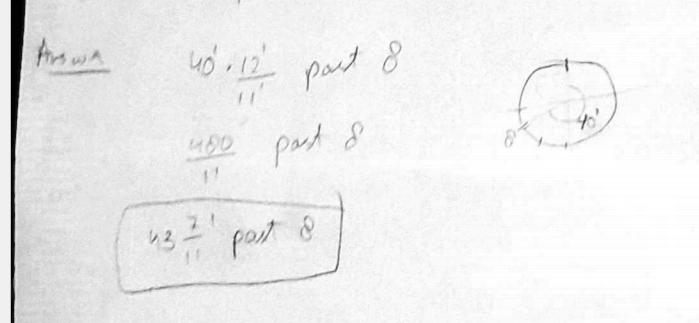 Answer
40' · 12'/11' past 8
480/11 past 8
43 7/11' past 8
8
40'